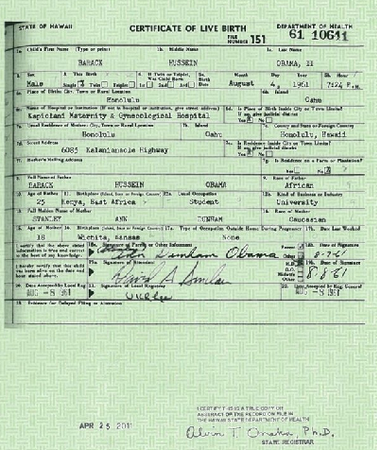 STATE OF HAWAII CERTIFICATE OF LIVE BIRTH DEPARTMENT OF HEALTH
FILE NUMBER 151 61 10641
1a. Child's First Name (Type or print) 1b. Middle Name 1c. Last Name
BARACK HUSSEIN OBAMA, II
2. Sex 3. This Birth 4. If Twin or Triplet, Was Child Born Month Day Year Hour
Male August 4, 1961 7:24 P.M.
6a. Place of Birth: City, Town or Rural Location 6b. Island
Honolulu Oahu
6c. Name of Hospital or Institution (If not in hospital or institution, give street address) 6d. Is Place of Birth Inside City or Town Limits?
Kapiolani Maternity & Gynecological Hospital
7a. Usual Residence of Mother: City, Town or Rural Location 7b. Island 7c. County and State or Foreign Country
Honolulu Oahu Honolulu, Hawaii
7d. Street Address 7e. Is Residence Inside City or Town Limits?
6085 Kalanianaole Highway
7f. Mother's Mailing Address 7g. Is Residence on a Farm or Plantation?
8. Full Name of Father 9. Race of Father
BARACK HUSSEIN OBAMA African
10. Age of Father 11. Birthplace (Island, State or Foreign Country) 12a. Usual Occupation 12b. Kind of Business or Industry
25 Kenya, East Africa Student University
13. Full Maiden Name of Mother 14. Race of Mother
STANLEY ANN DUNHAM Caucasian
15. Age of Mother 16. Birthplace (Island, State or Foreign Country) 17a. Type of Occupation Outside Home During Pregnancy 17b. Date Last Worked
18 Wichita, Kansas None
I certify that the above stated information is true and correct to the best of my knowledge. 18a. Signature of Parent or Other Informant 18b. Date of Signature
Dunham Obama 8-7-61
I hereby certify that this child was born alive on the date and hour stated above. 19a. Signature of Attendant 19b. Date of Signature
8-8-61
20. Date Accepted by Local Reg. 21. Signature of Local Registrar 22. Date Accepted by Reg. General
AUG -8 1961 AUG -8 1961
23. Evidence for Delayed Filing or Alteration
APR 25 2011
I CERTIFY THIS IS A TRUE COPY OR
ABSTRACT OF THE RECORD ON FILE IN
THE HAWAII STATE DEPARTMENT OF HEALTH
Alvin T. Onaka, Ph.D.
STATE REGISTRAR